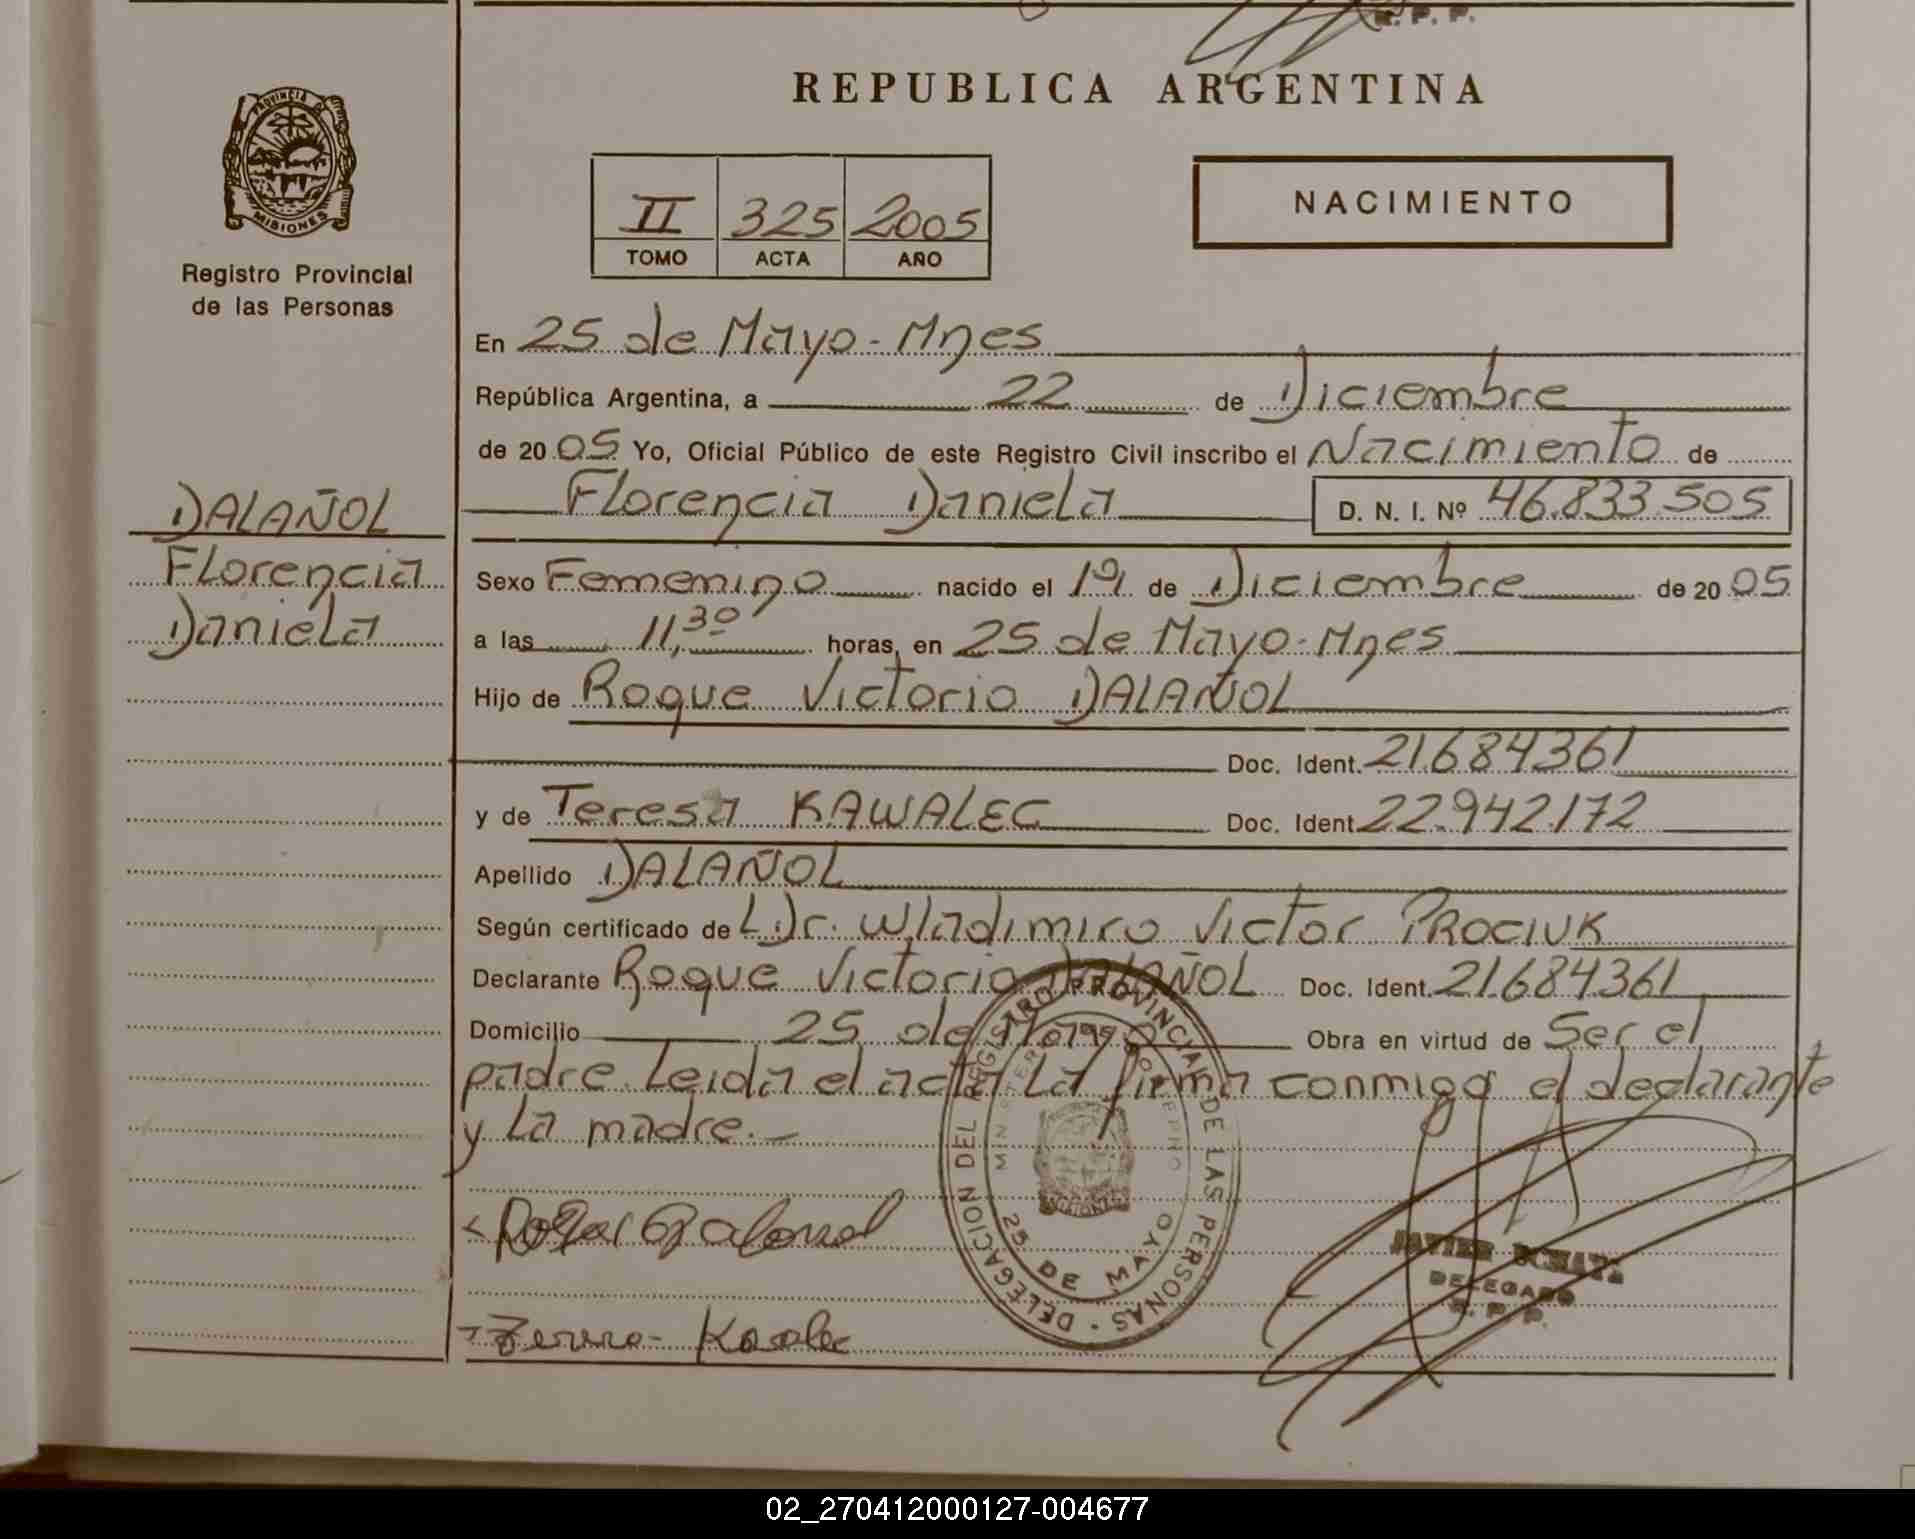 R. P. P.
REPUBLICA ARGENTINA
PROVINCIA DE
MISIONES
Registro Provincial
de las Personas
II 325 2005
TOMO ACTA AÑO
NACIMIENTO
En 25 de Mayo - Mnes
República Argentina, a 22 de Diciembre
de 2005 Yo, Oficial Público de este Registro Civil inscribo el Nacimiento de
Florencia Daniela D. N. I. Nº 46.833.505
DALAÑOL
Florencia
Daniela
Sexo Femenino nacido el 19 de Diciembre de 2005
a las 11,30 horas, en 25 de Mayo - Mnes
Hijo de Roque Victorio DALAÑOL
Doc. Ident. 21.684.361
y de Teresa KAWALEC Doc. Ident. 22.942.172
Apellido DALAÑOL
Según certificado de L Dr. Wladimiro Victor PROCIUK
Declarante Roque Victorio DALAÑOL Doc. Ident. 21.684.361
Domicilio 25 de Mayo Obra en virtud de Ser el
padre. Leida el acta La firma conmigo el declarante
y La madre.-
DELEGACION DEL REGISTRO PROVINCIAL DE LAS PERSONAS
25 DE MAYO
MISIONES
JAVIER
DELEGADO
R. P. P.
02_270412000127-004677